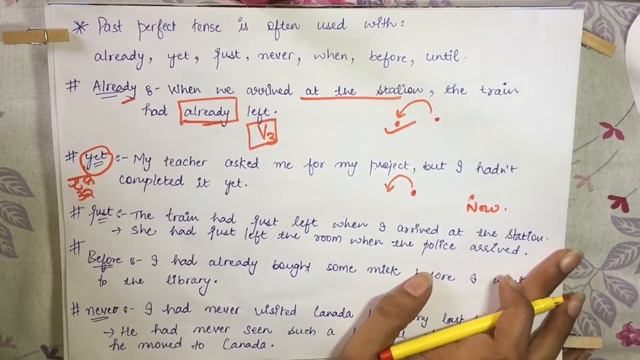 * Past perfect tense is often used with:
already, yet, just, never, when, before, until.
# Already :- When we arrived at the station, the train
had already left.
V3
# yet :- My teacher asked me for my project, but I hadn't
completed it yet.
Now.
# Just :- The train had just left when I arrived at the station.
→ She had just left the room when the police arrived.
# Before :- I had already bought some milk before I
to the library.
# never :- I had never visited Canada my last
→ He had never seen such a
he moved to Canada.